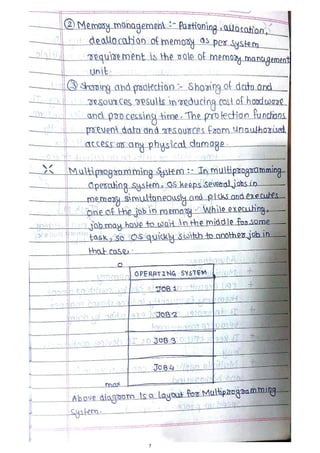 ② Memory management :- Partioning, allocation,
deallocation of memory as per system
requirement is the role of memory management
unit.
③ sharing and protection :- Sharing of data and
resources results in reducing cost of hardware
and processing time. The protection functions
prevent data and resources from unauthorised
access or any physical damage.
X Multiprogramming System :- In multiprogramming
operating system, OS keeps several jobs in
memory simultaneously and picks and executes
one of the job in memory. While executing,
job may have to wait in the middle for some
task, so OS quickly switch to another job in
that case.
0
OPERATING SYSTEM
JOB 1
JOB 2
JOB 3
JOB 4
max
Above diagram is a layout for Multiprogramming
System.
7